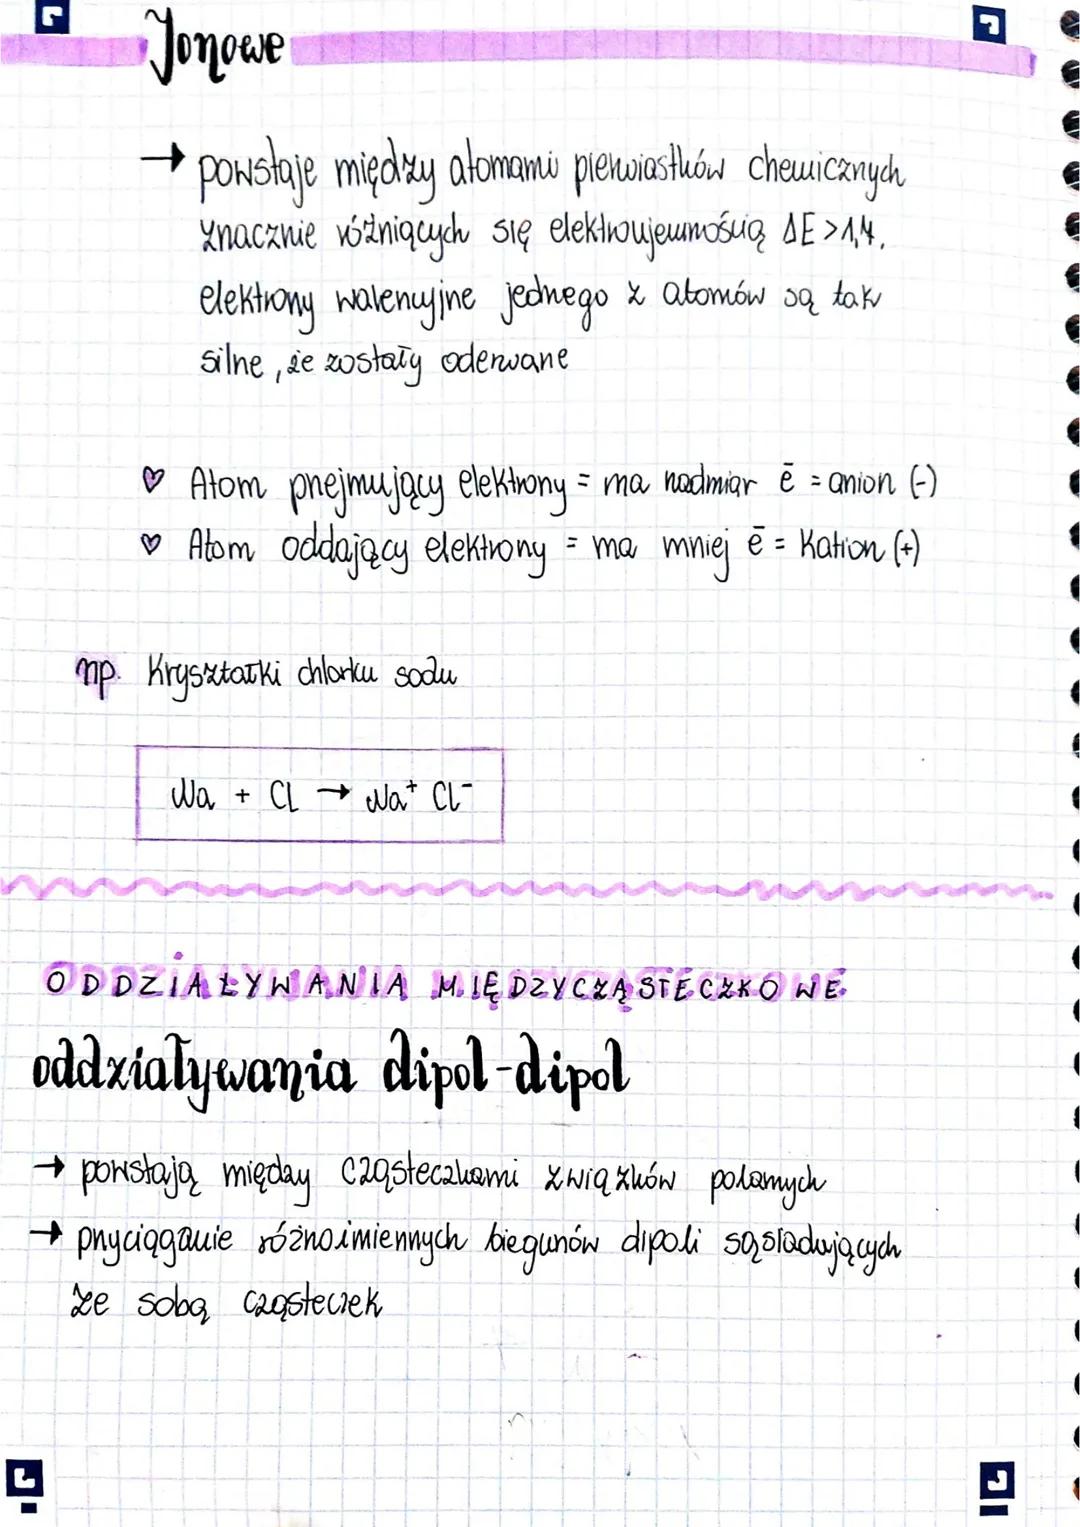 Jonowe
→ powstaje między atomami pierwiastków chemicznych
znacznie różniących się elektroujemnością ΔE > 1,4.
elektrony walencyjne jednego z atomów są tak
silne, że zostały oderwane
♡ Atom przejmujący elektrony = ma nadmiar ē = anion (-)
♡ Atom oddający elektrony = ma mniej ē = Kation (+)
np. Kryształki chlorku sodu
Na + Cl → Na⁺ Cl⁻
ODDZIAŁYWANIA MIĘDZYCZĄSTECZKOWE
oddziaływania dipol-dipol
→ powstają między cząsteczkami związków polarnych
→ przyciąganie różnoimiennych biegunów dipoli sąsiadujących
ze sobą cząsteczek